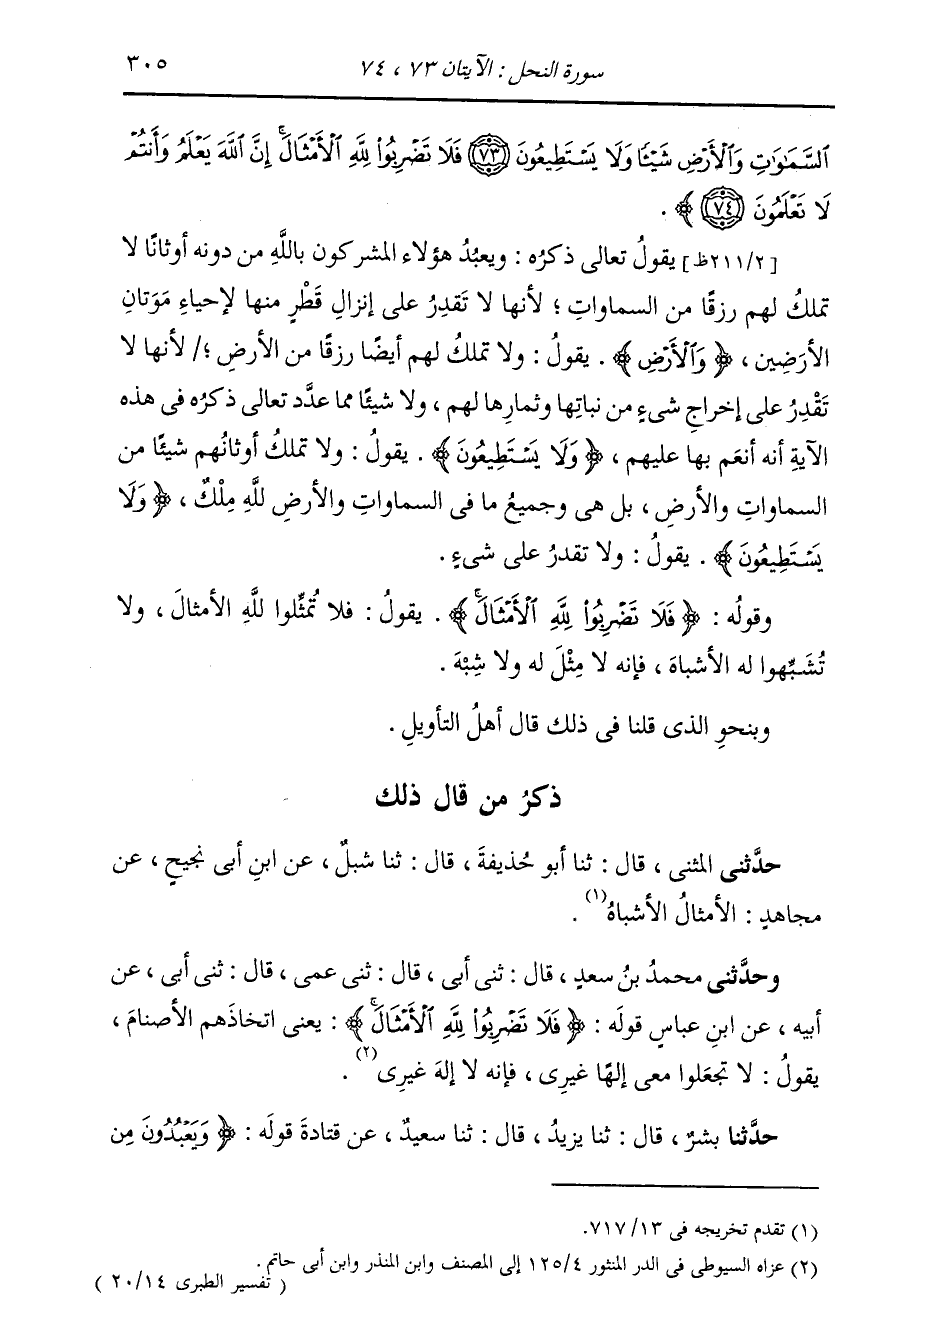 سورة النحل : الآيتان ٧٣ ، ٧٤ ٣٠٥
ٱلسَّمَٰوَٰتِ وَٱلْأَرْضِ شَيْـًٔا وَلَا يَسْتَطِيعُونَ ﴿٧٣﴾ فَلَا تَضْرِبُوا۟ لِلَّهِ ٱلْأَمْثَالَ ۚ إِنَّ ٱللَّهَ يَعْلَمُ وَأَنتُمْ
لَا تَعْلَمُونَ ﴿٧٤﴾ ﴾ .
[٢١١/٢ظ] يقولُ تعالى ذكرُه : ويعبُدُ هؤلاء المشركون باللَّهِ من دونه أوثانًا لا
تملكُ لهم رزقًا من السماواتِ ؛ لأنها لا تَقدِرُ على إنزالِ قَطْرٍ منها لإحياءِ مَوَتانِ
الأرَضِين ، ﴿ وَٱلْأَرْضِ ﴾ . يقولُ : ولا تملكُ لهم أيضًا رزقًا من الأرضِ ؛/ لأنها لا
تَقْدِرُ على إخراجِ شىءٍ من نباتِها وثمارِها لهم ، ولا شيئًا مما عدَّد تعالى ذكرُه فى هذه
الآيةِ أنه أنعَم بها عليهم ، ﴿ وَلَا يَسْتَطِيعُونَ ﴾ . يقولُ : ولا تملكُ أوثانُهم شيئًا من
السماواتِ والأرضِ ، بل هى وجميعُ ما فى السماواتِ والأرضِ للَّهِ مِلْكٌ ، ﴿ وَلَا
يَسْتَطِيعُونَ ﴾ . يقولُ : ولا تقدرُ على شىءٍ .
وقولُه : ﴿ فَلَا تَضْرِبُوا۟ لِلَّهِ ٱلْأَمْثَالَ ۚ ﴾ . يقولُ : فلا تُمثِّلوا للَّهِ الأمثالَ ، ولا
تُشَبِّهوا له الأشباهَ ، فإنه لا مِثْلَ له ولا شِبْهَ .
وبنحوِ الذى قلنا فى ذلك قال أهلُ التأويلِ .
ذكرُ من قال ذلك
حدَّثنى المثنى ، قال : ثنا أبو حُذيفةَ ، قال : ثنا شبلٌ ، عن ابنِ أبى نجيحٍ ، عن
مجاهدٍ : الأمثالُ الأشباهُ(١) .
وحدَّثنى محمدُ بنُ سعدٍ ، قال : ثنى أبى ، قال : ثنى عمى ، قال : ثنى أبى ، عن
أبيه ، عن ابنِ عباسٍ قولَه : ﴿ فَلَا تَضْرِبُوا۟ لِلَّهِ ٱلْأَمْثَالَ ۚ ﴾ : يعنى اتخاذَهم الأصنامَ ،
يقولُ : لا تجعَلوا معى إلهًا غيرِى ، فإنه لا إلهَ غيرِى(٢) .
حدَّثنا بشرٌ ، قال : ثنا يزيدُ ، قال : ثنا سعيدٌ ، عن قتادةَ قولَه : ﴿ وَيَعْبُدُونَ مِن
(١) تقدم تخريجه فى ٧١٧/١٣.
(٢) عزاه السيوطى فى الدر المنثور ١٢٥/٤ إلى المصنف وابن المنذر وابن أبى حاتم .
( تفسير الطبرى ٢٠/١٤ )